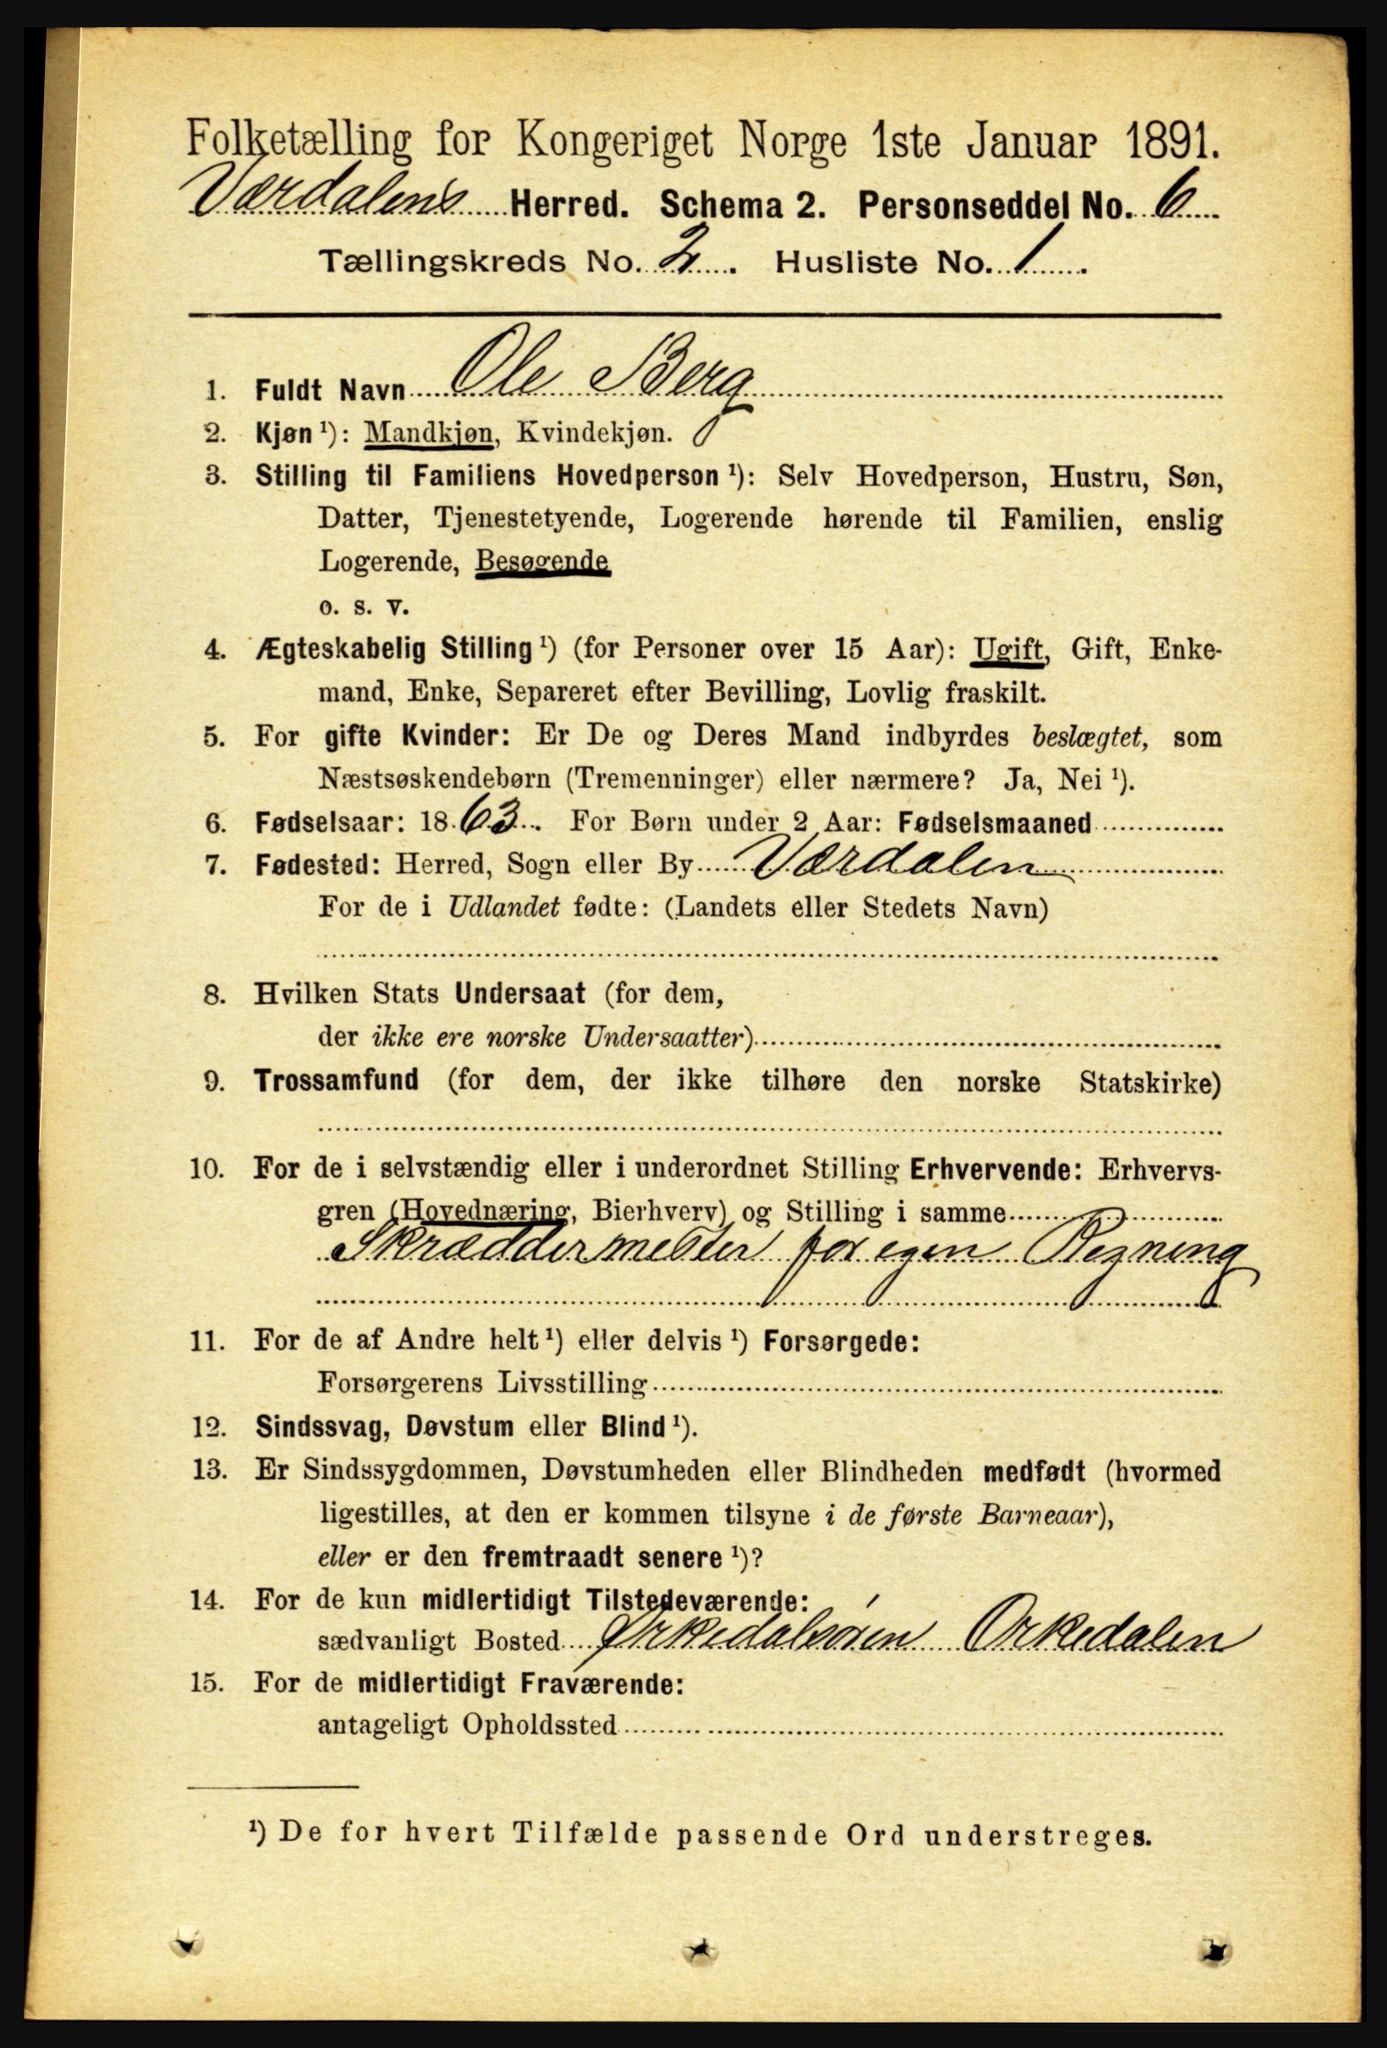 Folketælling for Kongeriget Norge 1ste Januar 1891.
Værdalens Herred. Schema 2. Personseddel No. 6
Tællingskreds No. 2. Husliste No. 1.
1. Fuldt Navn Ole Berg
2. Kjøn ¹): Mandkjøn, Kvindekjøn.
3. Stilling til Familiens Hovedperson ¹): Selv Hovedperson, Hustru, Søn,
Datter, Tjenestetyende, Logerende hørende til Familien, enslig
Logerende, Besøgende
o. s. v.
4. Ægteskabelig Stilling ¹) (for Personer over 15 Aar): Ugift, Gift, Enke-
mand, Enke, Separeret efter Bevilling, Lovlig fraskilt.
5. For gifte Kvinder: Er De og Deres Mand indbyrdes beslægtet, som
Næstsøskendebørn (Tremenninger) eller nærmere? Ja, Nei ¹).
6. Fødselsaar: 1863. For Børn under 2 Aar: Fødselsmaaned
7. Fødested: Herred, Sogn eller By Værdalen
For de i Udlandet fødte: (Landets eller Stedets Navn)
8. Hvilken Stats Undersaat (for dem,
der ikke ere norske Undersaatter)
9. Trossamfund (for dem, der ikke tilhøre den norske Statskirke)
10. For de i selvstændig eller i underordnet Stilling Erhvervende: Erhvervs-
gren (Hovednæring, Bierhverv) og Stilling i samme
Skræddermester for egen Regning
11. For de af Andre helt ¹) eller delvis ¹) Forsørgede:
Forsørgerens Livsstilling
12. Sindssvag, Døvstum eller Blind ¹).
13. Er Sindssygdommen, Døvstumheden eller Blindheden medfødt (hvormed
ligestilles, at den er kommen tilsyne i de første Barneaar),
eller er den fremtraadt senere ¹)?
14. For de kun midlertidigt Tilstedeværende:
sædvanligt Bosted Ørkedalsøren Orkedalen
15. For de midlertidigt Fraværende:
antageligt Opholdssted
¹) De for hvert Tilfælde passende Ord understreges.